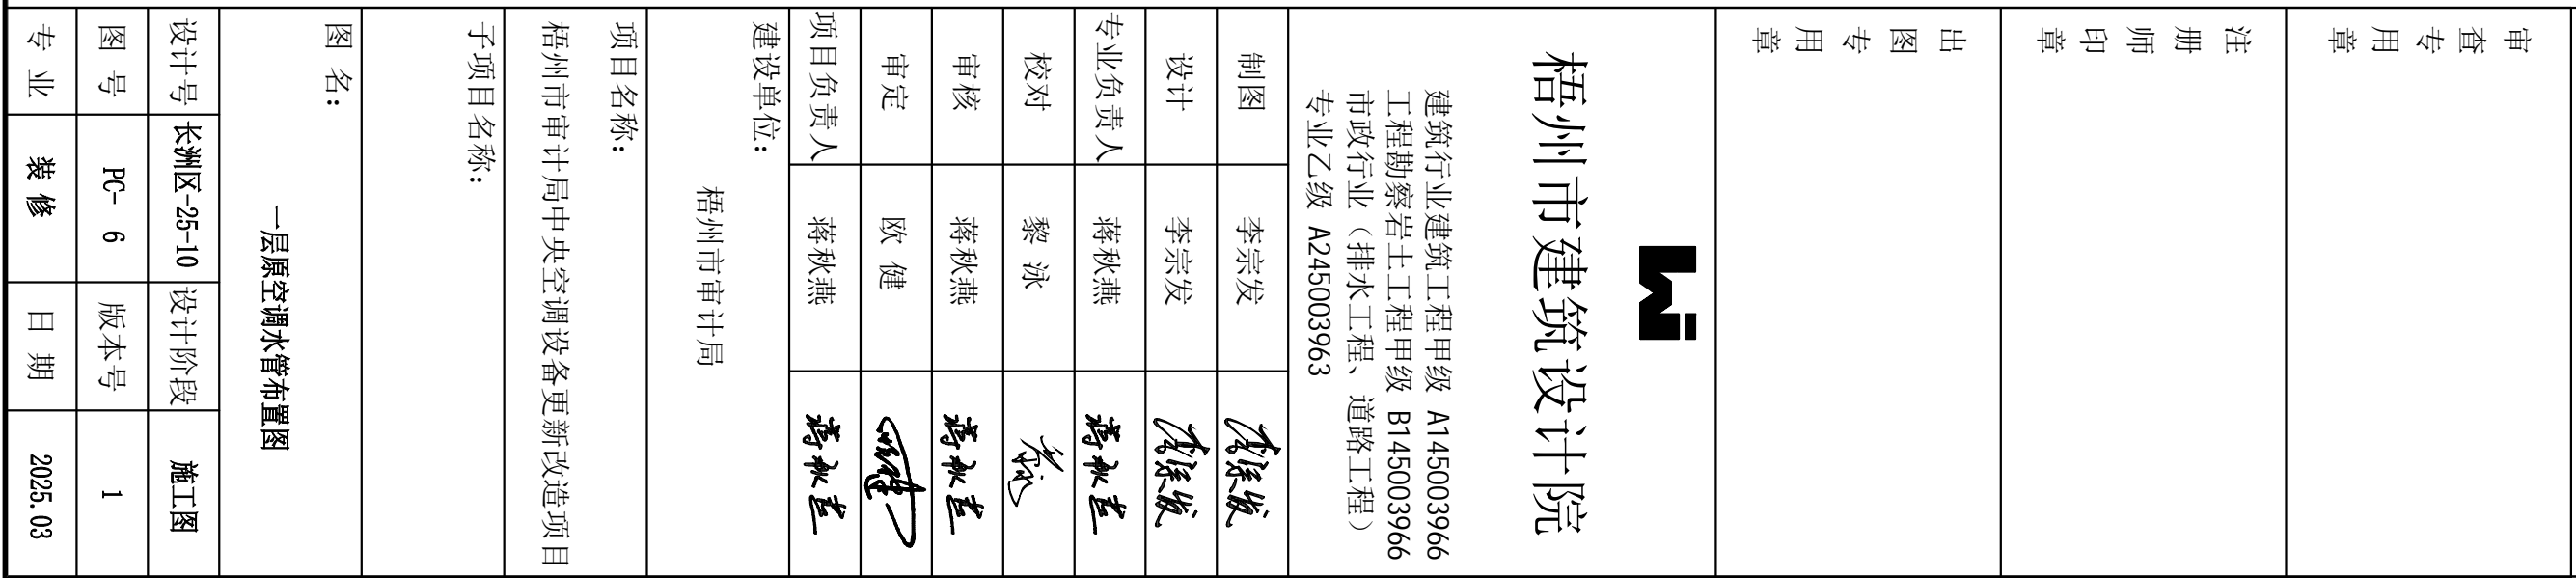 审查专用章
注册师印章
出图专用章
梧州市建筑设计院
建筑行业建筑工程甲级 A145003966
工程勘察岩土工程甲级 B145003966
市政行业（排水工程、道路工程）
专业乙级 A245003963
制图 李宗发 李宗发
设计 李宗发 李宗发
专业负责人 蒋秋燕 蒋秋燕
校对 黎 泳
审核 蒋秋燕 蒋秋燕
审定 欧 健 欧健
项目负责人 蒋秋燕 蒋秋燕
建设单位:
梧州市审计局
项目名称:
梧州市审计局中央空调设备更新改造项目
子项目名称:
图 名:
一层原空调水管布置图
设计号 长洲区-25-10 设计阶段 施工图
图 号 PC- 6 版本号 1
专 业 装 修 日 期 2025.03